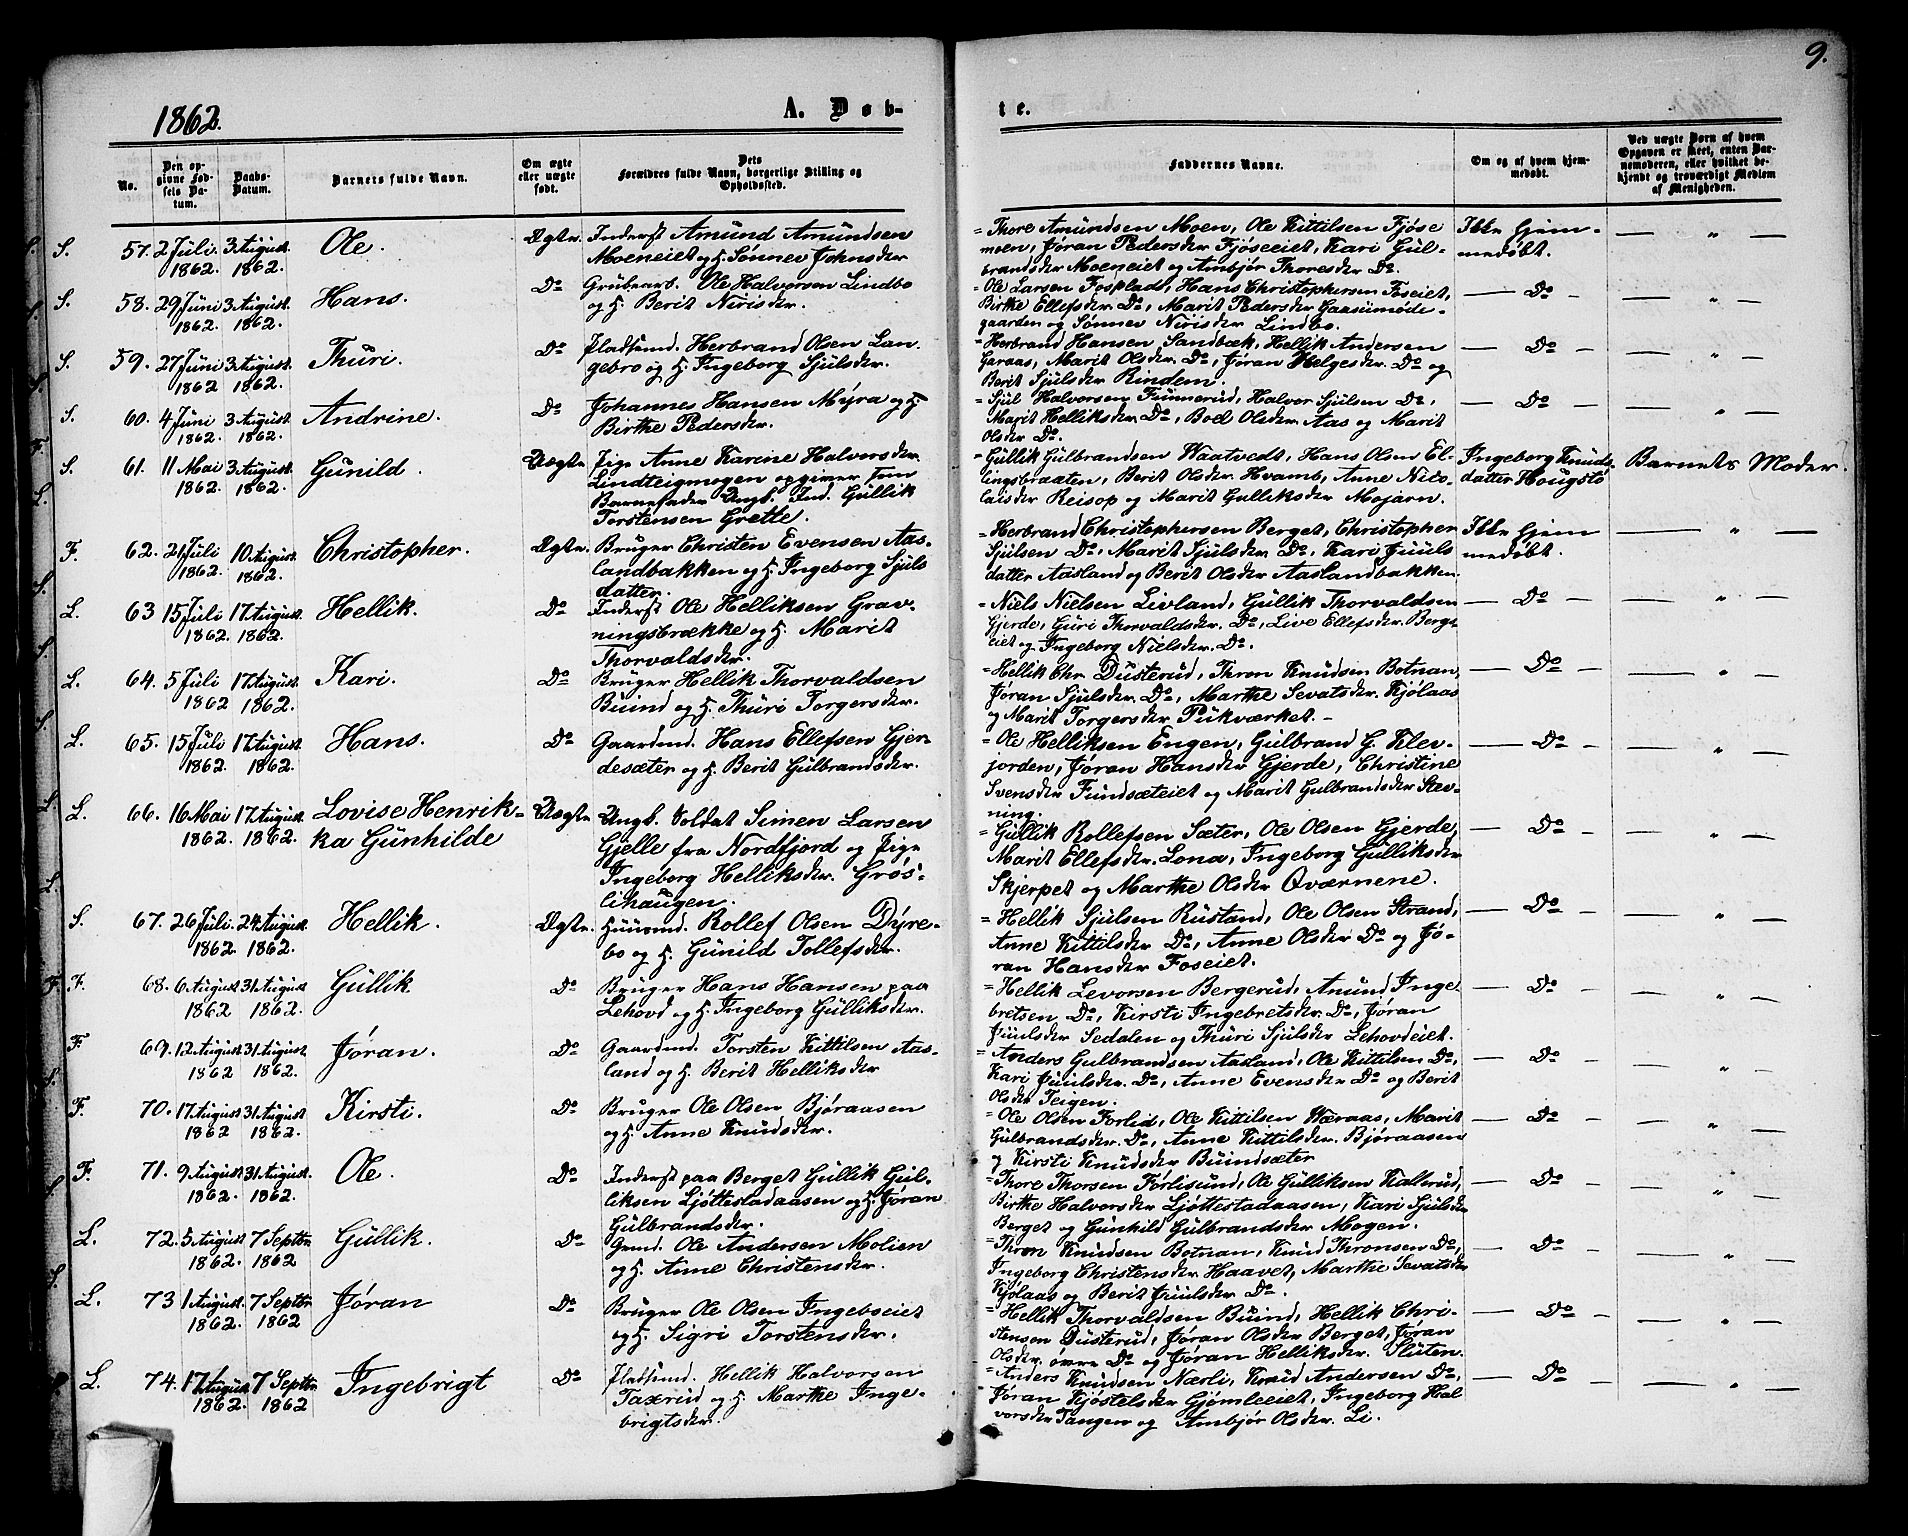 9.
1862.
A. Døb-
te.
No.
Den op-
givne Fød-
sels Da-
tum.
Daabs-
Datum.
Barnets fulde Navn.
Om ægte
eller uægte
født.
Dets
Forældres fulde Navn, borgerlige Stilling og
Opholdssted.
Faddernes Navne.
Om og af hvem hjem-
medøbt.
Ved uægte Børn af hvem
Opgaven er skeet, enten Bar-
nemoderen, eller hvilket be-
kjendt og troværdigt Medlem
af Menigheden.
S. 57. 2 Juli 1862. 3 August. 1862. Ole. Ægte. Inderst Amund Amundsen
Moeneiet og H. Sønnev Johnsdr
= Thore Amundsen Moen, Ole Kittilsen Fjøse
moen, Jøran Pedersdr Fjøseeiet, Kari Gul-
brandsdr Moeneiet og Ambjør Thoresdr Do.
Ikke Hjem-
medøbt. — „ —
S. 58. 29 Juni 1862. 3 August. 1862. Hans. Do Grubearb. Ole Halvorsen Lindbo
og H. Berit Nirisdr.
= Ole Larsen Fosplads, Hans Christophersen Foseiet,
Birthe Ellefsdr. Do, Marit Pedersdr Gaasumøde-
gaarden og Sønnev Nirisdr Lindbo.
— Do — — „ —
S. 59. 27 Juni 1862 3 August. 1862. Thuri. Do Pladsmd. Herbrand Olsen Lan-
gebro og H. Ingeborg Sjulsdr.
= Herbrand Hansen Sandbæk, Hellik Andersen
Garaas, Marit Olsdr. Do, Jøran Helgesdr. Do og
Berit Sjulsdr Rindem.
— Do — — „ —
S. 60. 4 Juni 1862. 3 August. 1862. Andrine. Do Johannes Hansen Myra og H.
Birthe Pedersdr.
= Sjul Halvorsen Funnerud, Halvor Sjulsen Do,
Marit Helliksdr. Do, Boel Olsdr Aas og Marit
Olsdr Do.
— Do — — „ —
S. 61. 11 Mai 1862. 3 August. 1862. Gunild. Uægte. Pige Anne Karine Halvorsdr.
Lindteigmogen opgiver som
Barnefader Ungk. Ind. Gullik
Torstensen Grette.
= Gullik Gulbrandsen Waatvedt, Hans Olsen El-
lingsbraaten, Berit Olsdr Hvamb, Anne Nico-
laisdr Reisop og Marit Gulliksdr Mojarn.
Ingeborg Knuds-
datter Hougstø
Barnets Moder.
F. 62. 21 Juli 1862. 10 August. 1862. Christopher. Ægte. Bruger Christen Evensen Aas-
landbakken og H. Ingeborg Sjuls
datter.
= Herbrand Christophersen Berget, Christopher
Sjulsen Do, Marit Sjulsdr. Do, Kari Juuls
datter Aasland og Berit Olsdr Aaslandbakken.
Ikke Hjem
medøbt. — „ —
L. 63 15 Juli 1862. 17 August. 1862. Hellik. Do Inderst Ole Helliksen Grav-
ningsbrække og H. Marit
Thorvaldsdr.
= Niels Nielsen Livland, Gullik Thorvaldsen
Gjerde, Guri Thorvaldsdr. Do, Live Ellefsdr. Berg-
eiet og Ingeborg Nielsdr. Do.
— Do — — „ —
L. 64. 5 Juli 1862 17 August. 1862. Kari. Do Bruger Hellik Thorvaldsen
Buind og H. Thuri Torgersdr.
= Hellik Chr. Dusterud, Thron Knudsen Botnan,
Jøran Sjulsdr. Do, Marthe Sevatsdr. Kjølaas
og Marit Torgersdr Pukværket. –
— Do — — „ —
L. 65. 15 Juli 1862. 17 August. 1862. Hans. Do Gaardmd. Hans Ellefsen Gjer-
desæter og H. Berit Gulbrandsdr.
= Ole Helliksen Engen, Gulbrand G. Klev-
jorden, Jøran Hansdr Gjerde, Christine
Svensdr Fundsæteiet og Marit Gulbrandsdr Stev-
ning.
— Do — — „ —
L. 66. 16 Mai 1862. 17 August. 1862. Lovise Henrik-
ka Gunhilde Uægte Ungk. Soldat Simen Larsen
Gjelle fra Nordfjord og Pige
Ingeborg Helliksdr. Grøs-
lihaugen.
= Gullik Rollefsen Sæter, Ole Olsen Gjerde,
Marit Ellefsdr. Lona, Ingeborg Gulliksdr
Skjerpet og Marthe Olsdr Qværnene.
— Do — — „ —
S. 67. 26 Juli. 1862. 24 August. 1862. Hellik. Ægte. Huusmd. Rollef Olsen Dyre-
bo og H. Gunild Tollefsdr.
= Hellik Sjulsen Rustand, Ole Olsen Strand,
Anne Kittilsdr Do, Anne Olsdr Do og Jø-
ran Hansdr Foseiet.
— Do — — „ —
F. 68. 6 August 1862 31 August. 1862. Gullik. Do Bruger Hans Hansen paa
Lehovd og H. Ingeborg Gulliksdr.
= Hellik Levorsen Bergerud, Amund Inge-
bretsen Do, Kirsti Ingebretsdr. Do, Jøran
Juulsdr Sedalen og Thuri Sjulsdr Lehovdeiet.
— Do — — „ —
F. 69. 12 August. 1862 31 August. 1862. Jøran. Do Gaardmd. Torsten Kittilsen Aas-
land og H. Berit Helliksdr
= Anders Gulbrandsen Aasland, Ole Kittilsen Do,
Kari Juulsdr. Do, Anne Evensdr Do og Berit
Olsdr Teigen.
— Do — — „ —
F. 70. 17 August 1862 31 August 1862. Kirsti. Do Bruger Ole Olsen Bjøraasen
og H. Anne Knudsdr.
= Ole Olsen Forlid, Ole Kittilsen Wæraas, Marit
Gulbrandsdr. Do, Anne Kittilsdr. Bjøraasen
og Kirsti Knudsdr Buindsæter
— Do — — „ —
F. 71. 9 August 1862. 31 August. 1862. Ole. Do Inderst paa Berget Gullik Gul-
liksen Ljøttestadaasen og H. Jøran
Gulbrandsdr.
= Thore Thorsen Forlisund, Ole Gulliksen Kallerud,
Birthe Halvorsdr Ljøttestadaasen, Kari Sjulsdr
Berget og Gunhild Gulbrandsdr Mogen.
— Do — — „ —
L. 72. 5 August 1862. 7 Septbr 1862 Gullik. Do Gmd. Ole Andersen Molien
og H. Anne Christensdr.
= Thron Knudsen Botnan, Knud Thronsen Do,
Ingeborg Christensdr. Haavet, Marthe Sevatsdr
Kjølaas og Berit Juulsdr. Do.
— Do — — „ —
L. 73 1 August. 1862. 7 Septbr 1862 Jøran Do Bruger Ole Olsen Ingebseiet
og H. Sigri Torstensdr.
= Hellik Thorvaldsen Buind, Hellik Chri-
stensen Dusterud, Jøran Olsdr Berget, Jøran
Olsdr. øvre Do og Jøran Helliksdr. Sluten.
— Do — — „ —
L. 74. 17 August. 1862. 7 Septbr 1862 Ingebrigt Do Pladsmd. Hellik Halvorsen
Taxerud og H. Marthe Inge-
brigtsdr.
= Anders Knudsen Nærli, Knud Andersen Do,
Jøran Kjøstelsdr Gjømleeiet, Ingeborg Hal-
vorsdr Tangen og Ambjør Olsdr. Li.
— Do — — „ —